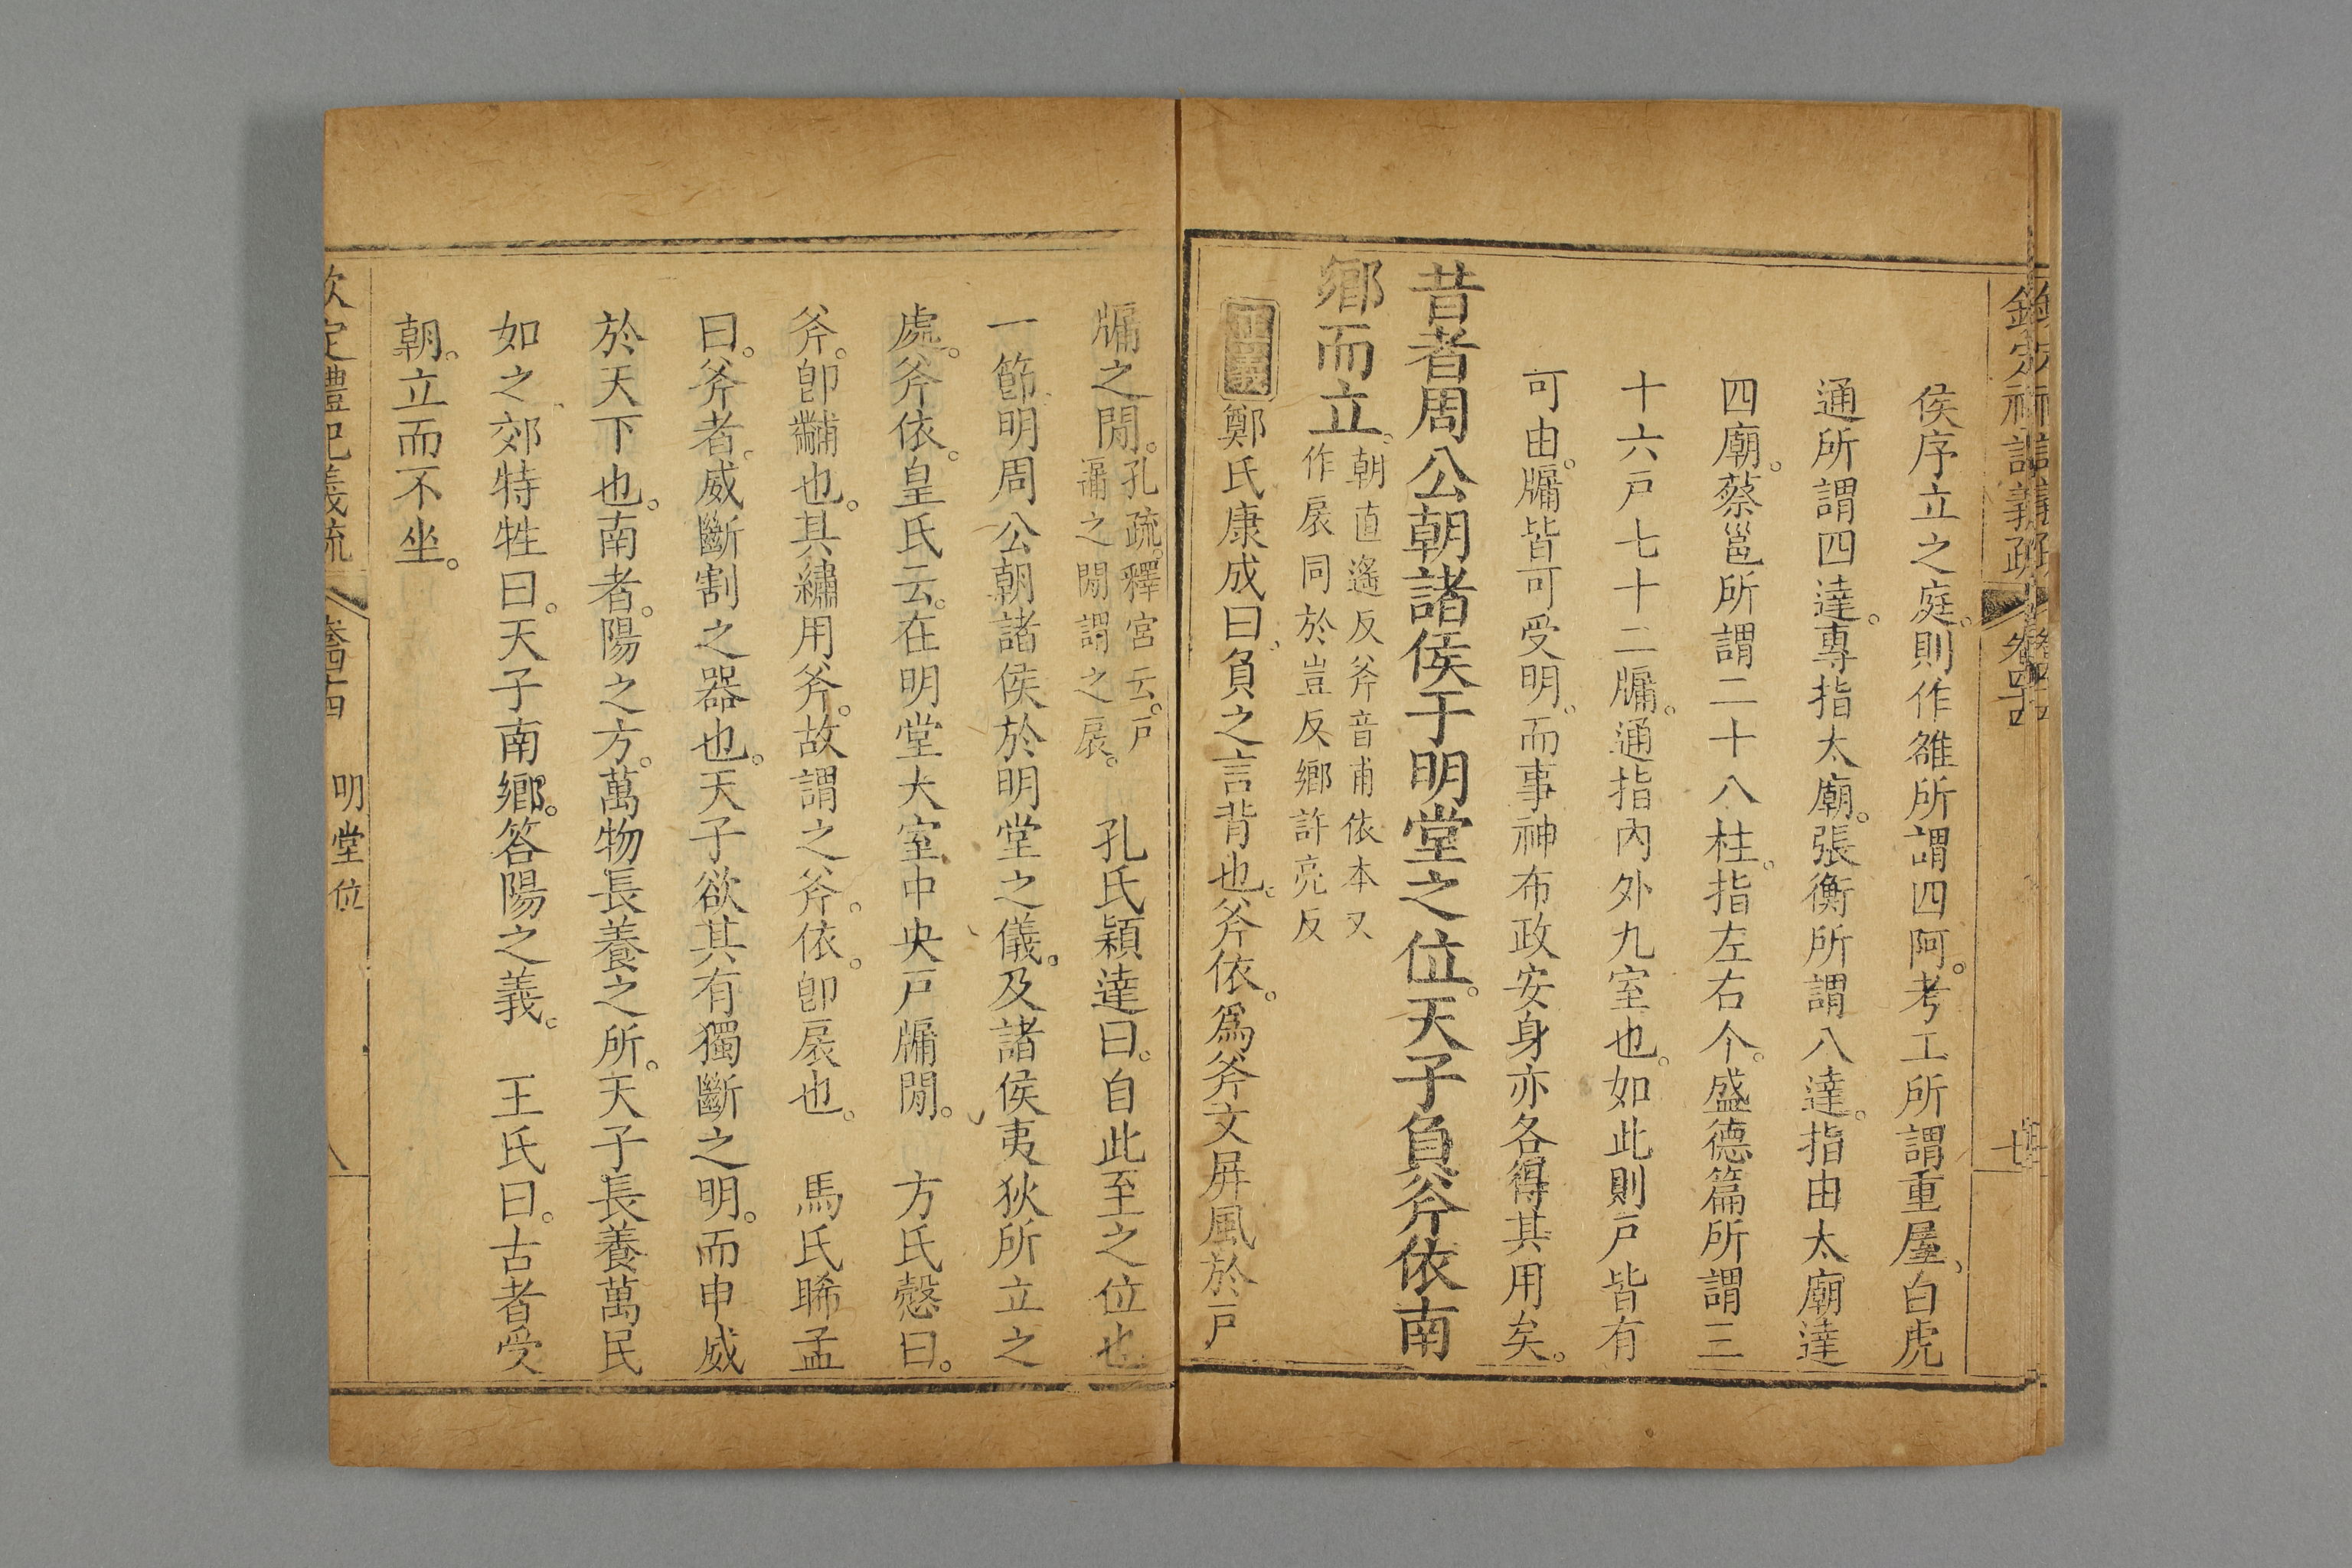 侯序立之庭。則作雒所謂四阿。考工所謂重屋、白虎
通所謂四達。專指太廟。張衡所謂八達。指由太廟達
四廟。蔡邕所謂二十八柱。指左右个。盛德篇所謂三
十六戸七十二牖。通指內外九室也。如此則戸皆有
可由。牖皆可受明。而事神布政安身亦各得其用矣。
昔者周公朝諸侯于明堂之位。天子負斧依南
鄉而立。
朝直遙反斧音甫依本又
作扆同於豈反鄉許亮反
正義鄭氏康成曰、負之言背也。斧依。爲斧文屛風於戸
牖之閒。
孔疏。釋宮云。戸
牖之閒謂之扆。
孔氏穎達曰。自此至之位也
一節、明周公朝諸侯於明堂之儀。及諸侯夷狄所立之
處。斧依。皇氏云。在明堂太室中央戸牖閒。 方氏愨曰。
斧。卽黼也。其繡用斧。故謂之斧。依。卽扆也。 馬氏睎孟
曰。斧者。威斷割之器也。天子欲其有獨斷之明。而申威
於天下也。南者。陽之方。萬物長養之所。天子長養萬民
如之、郊特牲曰。天子南鄉。答陽之義。 王氏曰。古者受
朝。立而不坐。
欽定禮記義疏 卷四十四 明堂位